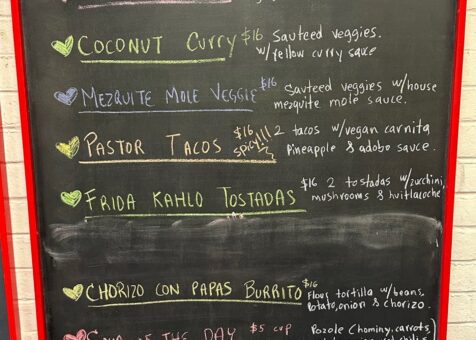 COCONUT CURRY $16 Sauteed veggies.
w/yellow curry sauce
MEZQUITE MOLE VEGGIE $16 Sauteed veggies w/house
mezquite mole sauce.
PASTOR TACOS $16 SPICY!!! 2 tacos w/vegan carnita
Pineapple & adobo sauce.
FRIDA KAHLO TOSTADAS $16 2 tostadas w/zucchini
mushrooms & huitlacoche
CHORIZO CON PAPAS BURRITO $16 Flour tortilla w/beans,
Potato, onion & chorizo.
SOUP OF THE DAY $5 CUP Pozole (hominy, carrots,